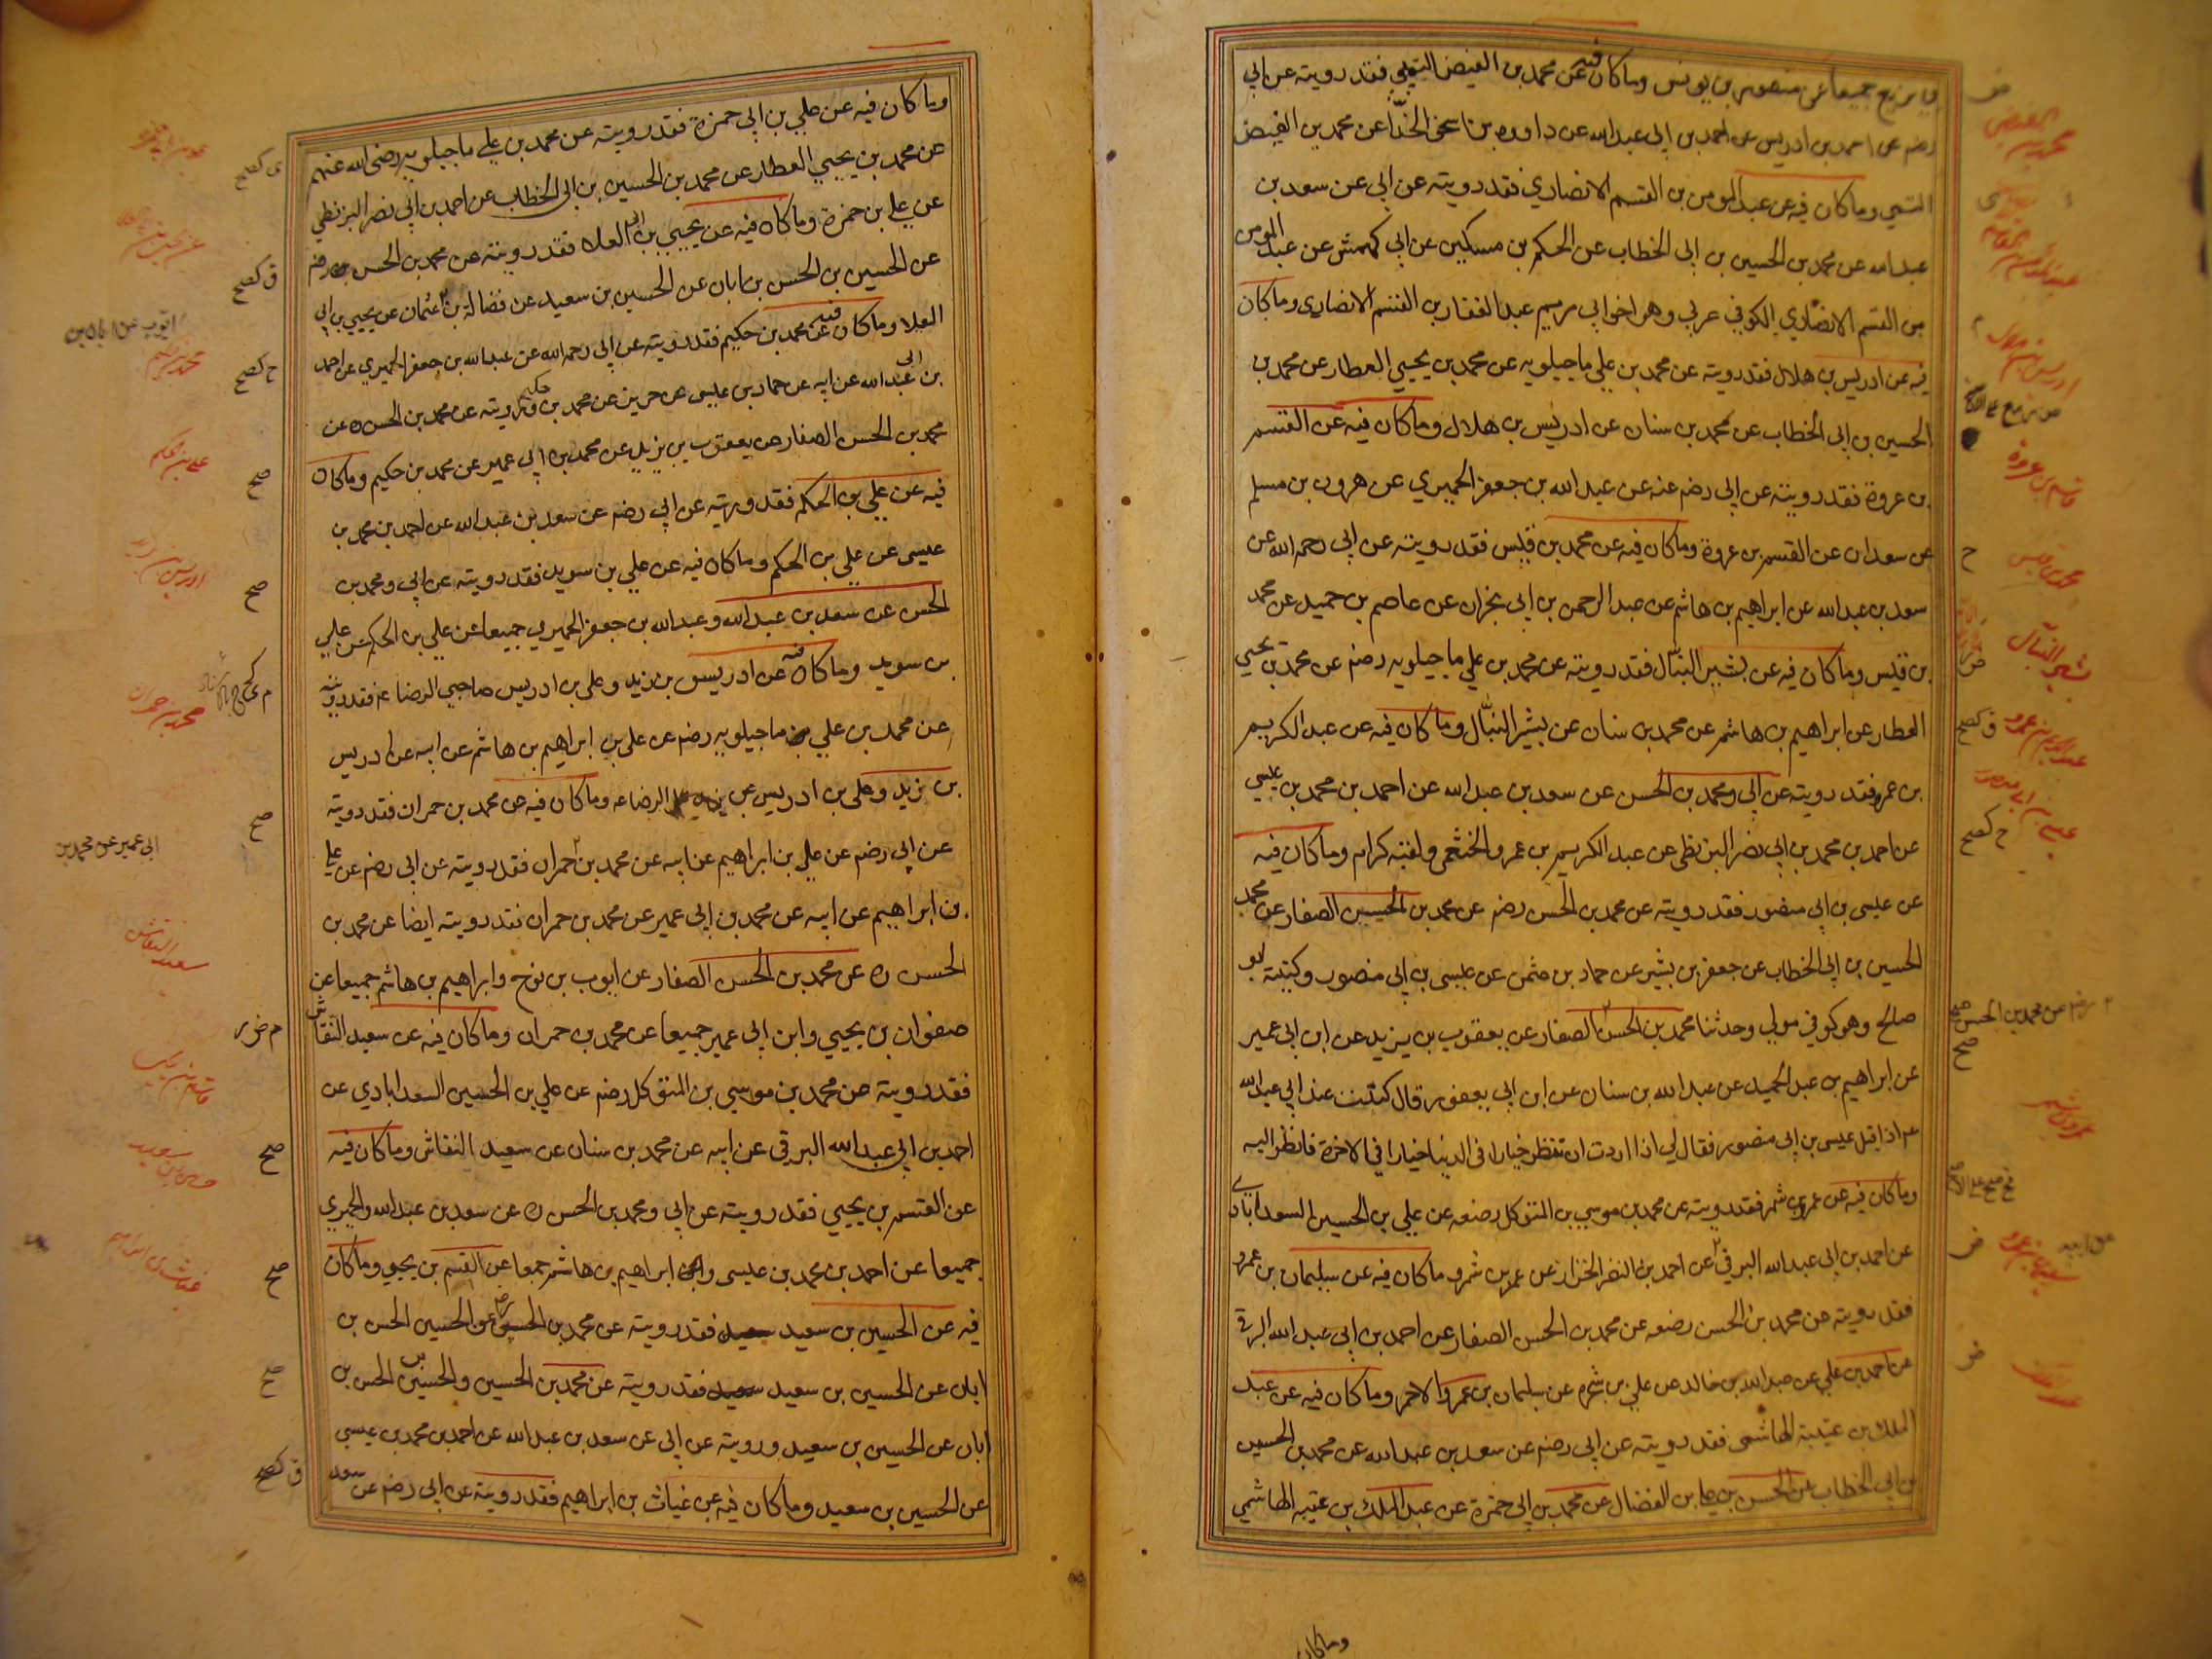 بن بزيع جميعا عن منصور بن يونس وما كان فيه عن محمد بن الفيض التيمي فقد رويته عن ابي
رضه عن احمد بن ادريس عن احمد بن ابي عبد الله عن داود بن اسحق الحذّا عن محمد بن الفيض
التيمي وما كان فيه عن عبد المومن بن القسم الانصاري فقد رويته عن ابي عن سعد بن
عبد الله عن محمد بن الحسين بن ابي الخطاب عن الحكم بن مسكين عن ابي كهمش عن عبد المومن
بن القسم الانصاري الكوفي عربي وهو اخو ابي مريم عبد الغفار بن القسم الانصاري وما كان
فيه عن ادريس بن هلال فقد رويته عن محمد بن علي ماجيلويه عن محمد بن يحيي العطار عن محمد بن
الحسين بن ابي الخطاب عن محمد بن سنان عن ادريس بن هلال وما كان فيه عن القسم
بن عروة فقد رويته عن ابي رضه عنه عن عبد الله بن جعفر الحميري عن هرون بن مسلم
عن سعدان عن القسم بن عروة وما كان فيه عن محمد بن قيس فقد رويته عن ابي رحمه الله عن
سعد بن عبد الله عن ابراهيم بن هاشم عن عبد الرحمن بن ابي نجران عن عاصم بن حميد عن محمد
بن قيس وما كان فيه عن بشير النبّال فقد رويته عن محمد بن علي ماجيلويه رضه عن محمد بن يحيي
العطار عن ابراهيم بن هاشم عن محمد بن سنان عن بشير النبّال وما كان فيه عن عبد الكريم
بن عمرو فقد رويته عن ابي ومحمد بن الحسن عن سعد بن عبد الله عن احمد بن محمد بن عيسي
عن احمد بن محمد بن ابي نصر البزنطي عن عبد الكريم بن عمرو الخثعمي ولقبه كرام وما كان فيه
عن عيسي بن ابي منصور فقد رويته عن محمد بن الحسن رضه عن محمد بن الحسن الصفار عن محمد
الحسين بن ابي الخطاب عن جعفر بن بشير عن حماد بن عثمن عن عيسي بن ابي منصور وكنيته ابو
صالح وهو كوفي مولي وحدثنا محمد بن الحسن الصفار عن يعقوب بن يزيد عن ابن ابي عمير
عن ابراهيم بن عبد الحميد عن عبد الله بن سنان عن ابن ابي يعفور قال كنت عند ابي عبد الله
عم اذا قبل عيسي بن ابي منصور فقال لي اذا اردت ان تنظر خيارا في الدنيا خيارا في الاخرة فانظر اليه
وما كان فيه عن عمرو بن شمر فقد رويته عن محمد بن موسي بن المتوكل رضعه عن علي بن الحسين السعدابادي
عن احمد بن ابي عبد الله البرقي عن احمد بن النضر الخزاز عن عمرو بن شمر وما كان فيه عن سليمان بن عمرو
فقد رويته عن محمد بن الحسن رضعه عن محمد بن الحسن الصفار عن احمد بن ابي عبد الله البرقي
عن احمد بن علي عن عبد الله بن خالد عن علي بن شجرة عن سليمان بن عمرو الاحمر وما كان فيه عن عبد
الملك بن عتيبة الهاشمي فقد رويته عن ابي رضه عن سعد بن عبد الله عن محمد بن الحسين
بن ابي الخطاب عن الحسن بن علي بن الفضال عن محمد بن ابي حمزة عن عبد الملك بن عتيبه الهاشمي
وما كان
محمد بن الفيض
ادريس بن هلال
قاسم بن عروة
محمد بن قيس
بشير النبّال
عبد الكريم بن عمرو
ق كصح
عيسي بن ابي منصور
ح كصح
رضه عن محمد بن الحسن صح
صح
عمرو بن شمر
عن ابيه
سليمان بن عمرو
عبد الملك
وما كان فيه عن علي بن ابي حمزة فقد رويته عن محمد بن علي ماجيلويه رضى الله عنهم
عن محمد بن يحيي العطار عن محمد بن الحسين بن ابي الخطاب عن احمد بن ابي نصر البزنطي
عن علي بن حمزة وما كان فيه عن يحيي بن ابي العلا فقد رويته عن محمد بن الحسن رضه
عن الحسين بن الحسن بن ابان عن الحسين بن سعيد عن فضالة بن عثمان عن يحيي بن ابي
العلا وما كان فيه عن محمد بن حكيم فقد رويته عن ابي رحمه الله عن عبد الله بن جعفر الحميري عن احمد
بن ابي عبد الله عن ابيه عن حماد بن عيسي عن حريز عن محمد بن حكيم ورويته عن محمد بن الحسن ره عن
محمد بن الحسن الصفار عن يعقوب بن يزيد عن محمد بن ابي عمير عن محمد بن حكيم وما كان
فيه عن علي بن الحكم فقد رويته عن ابي رضه عن سعد بن عبد الله عن احمد بن محمد بن
عيسى عن علي بن الحكم وما كان فيه عن علي بن سويد فقد رويته عن ابي ومحمد بن
الحسن عن سعد بن عبد الله وعبد الله بن جعفر الحميري جميعا عن علي بن الحكم عن علي
بن سويد وما كان فيه عن ادريس بن زيد وعلي بن ادريس صاحبي الرضا عم فقد رويته
عن محمد بن علي ماجيلويه رضه عن علي بن ابراهيم بن هاشم عن ابيه عن ادريس
بن زيد وعلي بن ادريس عن الرضا عم وما كان فيه عن محمد بن حمران فقد رويته
عن ابي رضه عن علي بن ابراهيم عن ابيه عن محمد بن حمران فقد رويته عن ابي رضه عن علي
بن ابراهيم عن ابيه عن محمد بن ابي عمير عن محمد بن حمران فقد رويته ايضا عن محمد بن
الحسن ره عن محمد بن الحسن الصفار عن ايوب بن نوح وابراهيم بن هاشم جميعا عن
صفوان بن يحيي وابن ابي عمير جميعا عن محمد بن حمران وما كان فيه عن سعيد النقاش
فقد رويته عن محمد بن موسي بن المتوكل رضه عن علي بن الحسين السعدابادي عن
احمد بن ابي عبد الله البرقي عن ابيه عن محمد بن سنان عن سعيد النقاش وما كان فيه
عن القسم بن يحيي فقد رويته عن ابي ومحمد بن الحسن ره عن سعد بن عبد الله والحميري
جميعا عن احمد بن محمد بن عيسى وابراهيم بن هاشم جميعا عن القسم بن يحيي وما كان
فيه عن الحسين بن سعيد فقد رويته عن محمد بن الحسن عن الحسين الحسن بن
ابان عن الحسين بن سعيد فقد رويته عن محمد بن الحسين والحسين بن الحسن بن
ابان عن الحسين بن سعيد ورويته عن ابي عن سعد بن عبد الله عن احمد بن محمد بن عيسي
عن الحسين بن سعيد وما كان فيه عن غياث بن ابراهيم فقد رويته عن ابي رضه عن سعد
ق كصح
ايوب عن ابان بن
محمد بن حكيم
ح كصح
علي بن حكم
صح
ادريس بن زيد
صح
محمد بن حمران
صح
ابي عمير عن محمد بن
سعيد النقاش
قاسم بن يحيي
صح
حسين بن سعيد
صح
غياث بن ابراهيم
صح
ق كصح